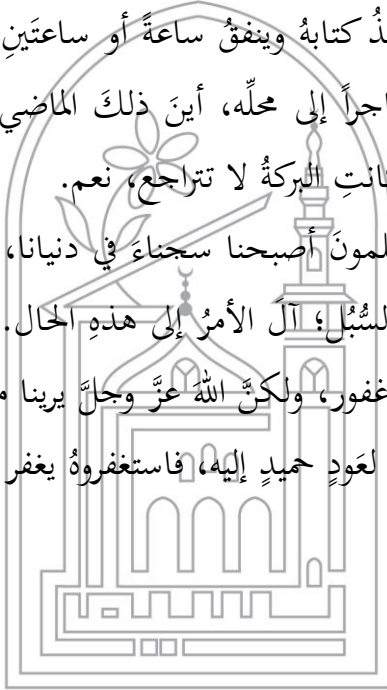 ذُ كتابهُ وينفقُ ساعةً أو ساعتَينِ
اجراً إلى محلِّه، أينَ ذلكَ الماضي
انتِ البركةُ لا تتراجع، نعم.
لمونَ أصبحنا سجناءَ في دنيانا،
لسُّبُل؛ آلَ الأمرُ إلى هذهِ الحال.
غفور، ولكنَّ اللهَ عزَّ وجلَّ يرينا م
لعَودٍ حميدٍ إليه، فاستغفروهُ يغفر